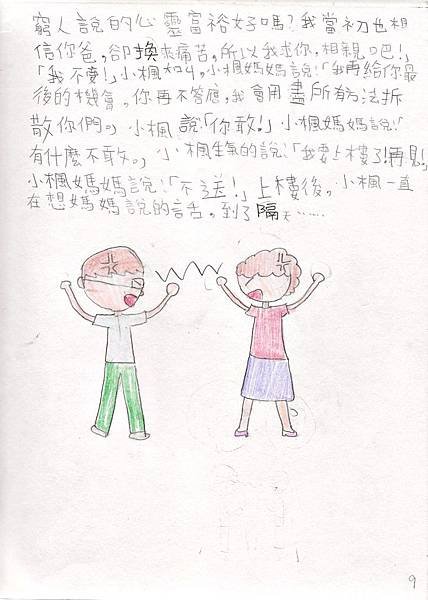 窮人說的心靈富裕好嗎？我當初也相
信你爸，卻換來痛苦，所以我求你，相親吧！」
「我不要！」小楓大叫，小楓媽媽說：「我再給你最
後的機會，你再不答應，我會用盡所有方法拆
散你們。」小楓說：「你敢！」小楓媽媽說：「
有什麼不敢。」小楓生氣的說：「我要上樓了！再見！」
小楓媽媽說：「不送！」上樓後，小楓一直
在想媽媽說的話，到了隔天……
9